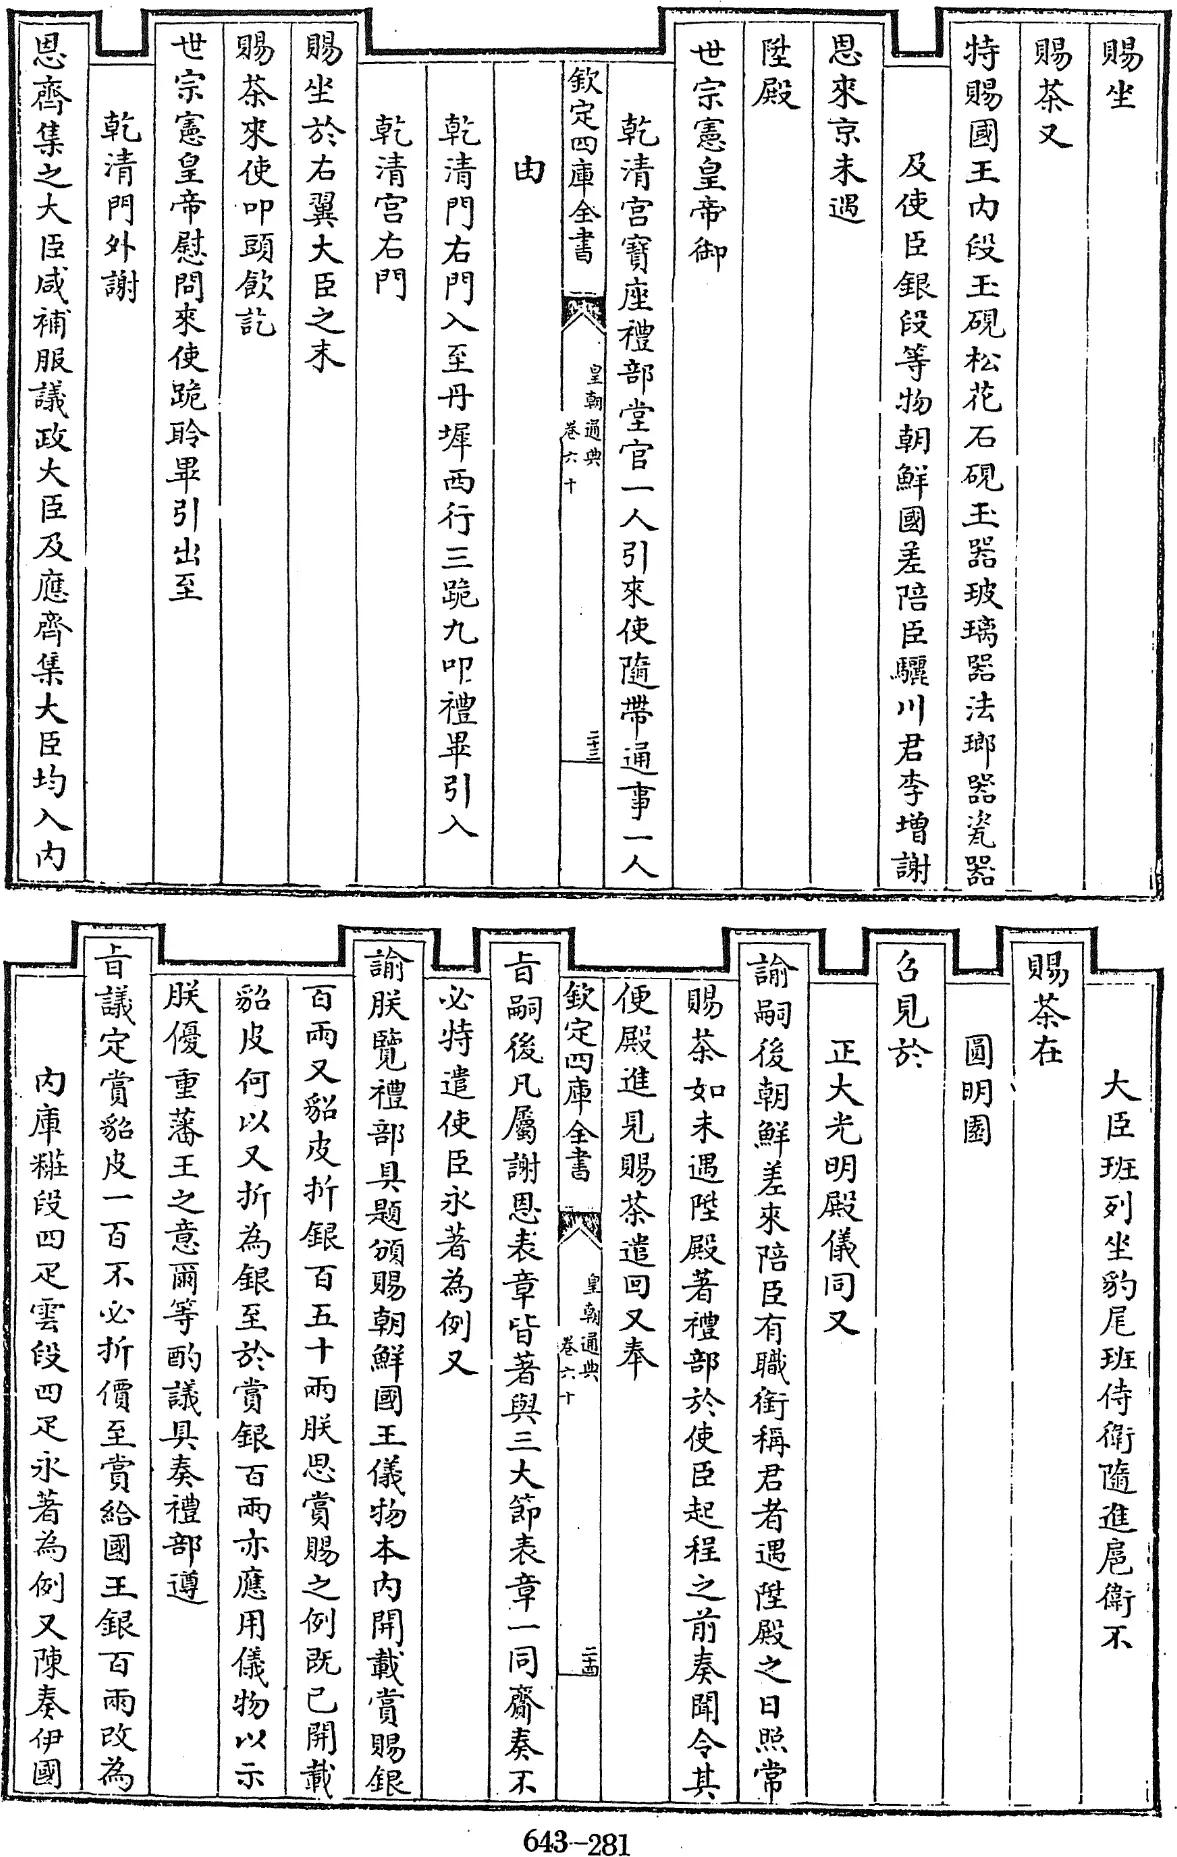 賜坐
賜茶又
特賜國王內段玉硯松花石硯玉器玻璃器法瑯器瓷器
及使臣銀段等物朝鮮國差陪臣驪川君李增謝
恩來京未遇
陞殿
世宗憲皇帝御
乾清宮寶座禮部堂官一人引來使隨帶通事一人
欽定四庫全書
皇朝通典
卷六十
二十三
由
乾清門右門入至丹墀西行三跪九叩禮畢引入
乾清宮右門
賜坐於右翼大臣之末
賜茶來使叩頭飲訖
世宗憲皇帝慰問來使跪聆畢引出至
乾清門外謝
恩齊集之大臣咸補服議政大臣及應齊集大臣均入內
大臣班列坐豹尾班侍衛隨進扈衛不
賜茶在
圓明園
召見於
正大光明殿儀同又
諭嗣後朝鮮差來陪臣有職銜稱君者遇陞殿之日照常
賜茶如未遇陞殿著禮部於使臣起程之前奏聞令其
便殿進見賜茶遣回又奉
欽定四庫全書
皇朝通典
卷六十
二十四
旨嗣後凡屬謝恩表章皆著與三大節表章一同齎奏不
必特遣使臣永著為例又
諭朕覽禮部具題頒賜朝鮮國王儀物本內開載賞賜銀
百兩又貂皮折銀百五十兩朕思賞賜之例既已開載
貂皮何以又折為銀至於賞銀百兩亦應用儀物以示
朕優重藩王之意爾等酌議具奏禮部遵
旨議定賞貂皮一百不必折價至賞給國王銀百兩改為
內庫粧段四疋雲段四疋永著為例又陳奏伊國
643-281